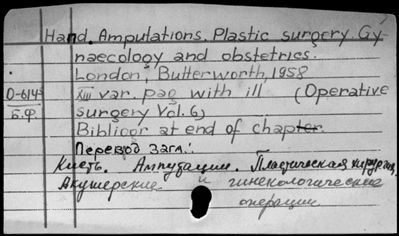 Hand. Amputations. Plastic surgery. Gy-
naecology and obstetrics.
London, Butterworth, 1958
O-614 XIII var. pag with ill (Operative
Б.Ф. surgery Vol. 6)
Bibliogr at end of chapter.
Перевод загл.:
Кисть. Ампутации. Пластическая хирургия,
Акушерские и гинекологические
операции